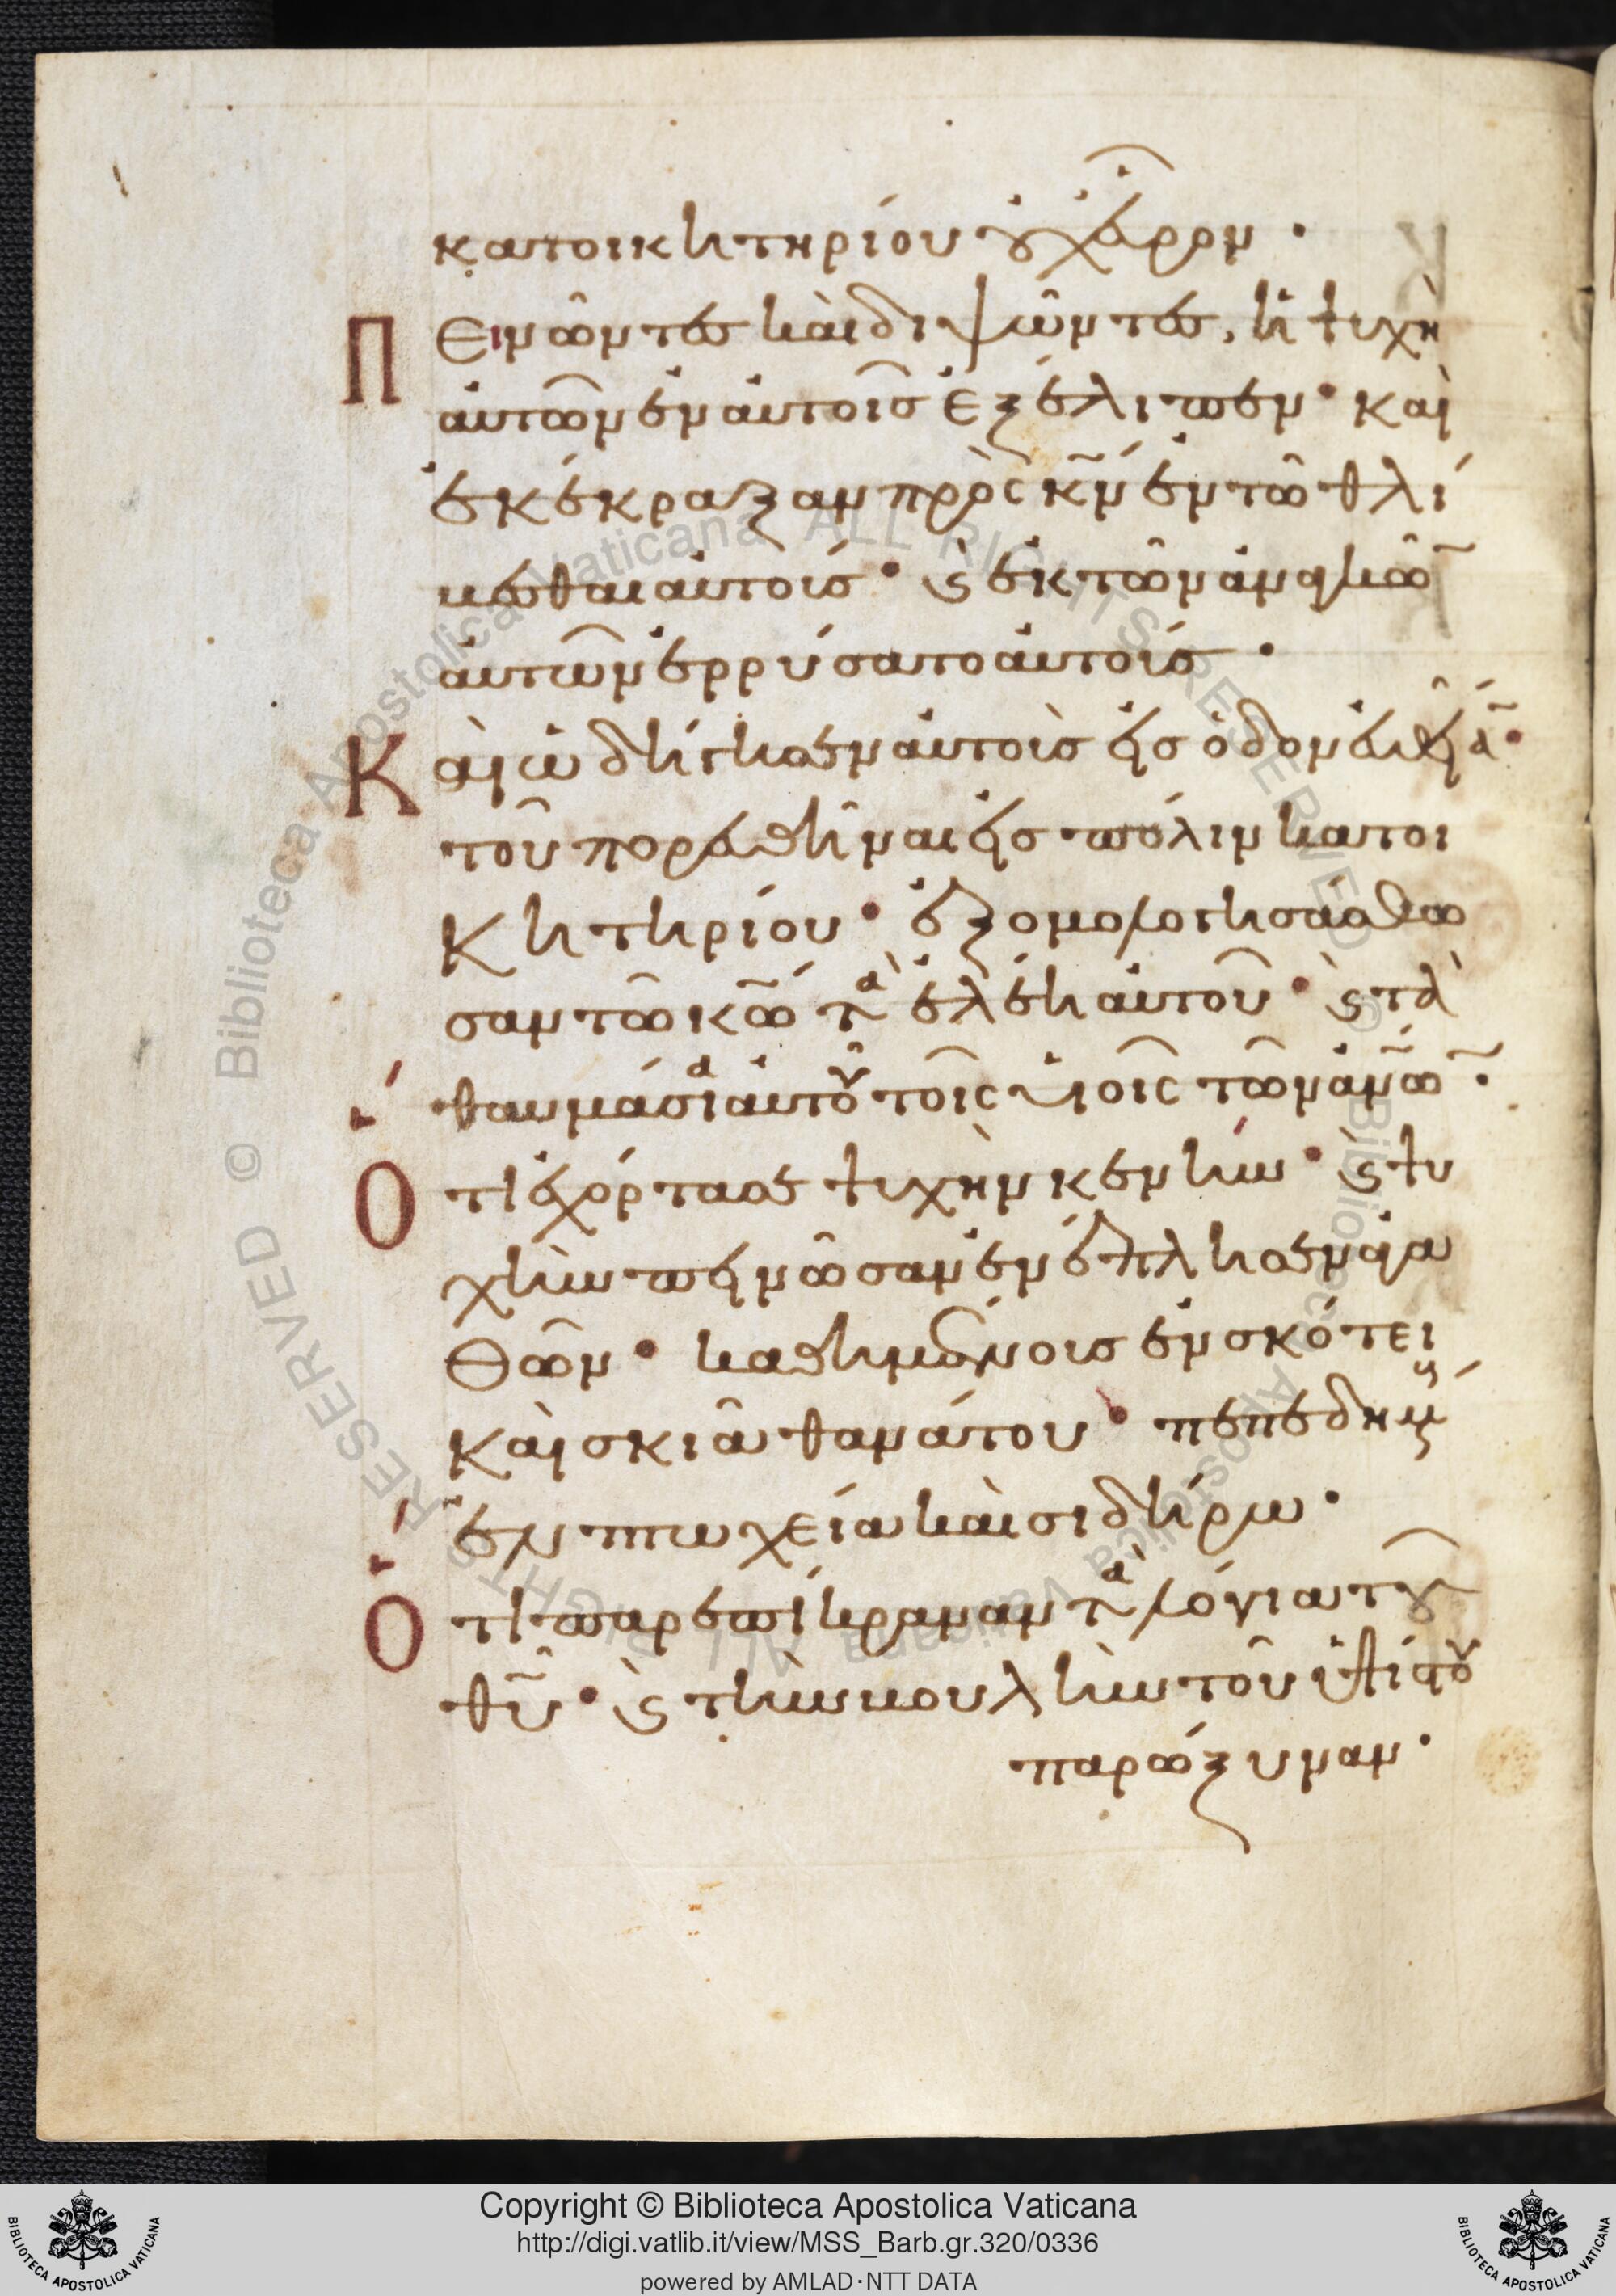 κατοικητηρίου οὐχ εὗρον·
Πεινῶντες καὶ διψῶντες, ἡ ψυχὴ
αὐτῶν ἐν αὐτοῖς ἐξέλιπεν· καὶ
ἐκέκραξαν πρὸς κ̅ν̅ ἐν τῶ θλί
βεσθαι αὐτούς· ϗ ἐκ τῶν ἀναγκῶ
αὐτῶν ἐρρύσατο αὐτούς·
Καὶ ὡδήγησεν αὐτοὺς εἰς ὁδὸν εὐθεῖα̅·
τοῦ πορευθῆναι εἰς πόλιν κατοι
κητηρίου· ἐξομολογησάσθω
σαν τῶ κ̅ω̅ τὰ ἐλέη αὐτοῦ· ϗ τὰ
θαυμάσια αὐτοῦ τοῖς υἱοῖς τῶν ἀν̅ω̅ν̅·
Ὅτι ἐχόρτασε ψυχὴν κενήν· ϗ ψυ
χὴν πεινῶσαν ἐνέπλησεν ἀγα
θῶν· καθημένους ἐν σκότει
καὶ σκιᾶ θανάτου· πεπεδημ
ἐν πτωχεία καὶ σιδήρω·
Ὅτι παρεπίκραναν τὰ λόγια τοῦ
θ̅υ̅· ϗ τὴν βουλὴν τοῦ ὑψίστου
παρώξυναν·
Copyright © Biblioteca Apostolica Vaticana
http://digi.vatlib.it/view/MSS_Barb.gr.320/0336
powered by AMLAD·NTT DATA
BIBLIOTECA APOSTOLICA VATICANA
BIBLIOTECA APOSTOLICA VATICANA